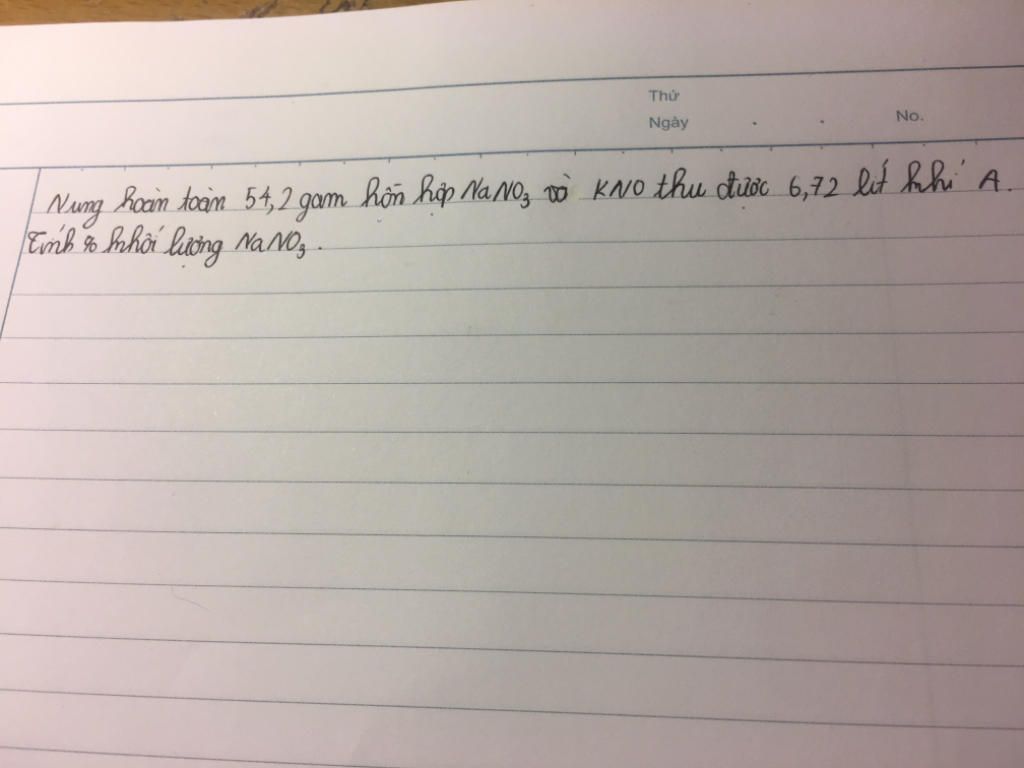 Thứ
Ngày . . No.
Nung hoàn toàn 54,2 gam hỗn hợp NaNO₃ và KNO thu được 6,72 lít khí A.
Tính % khối lượng NaNO₃.